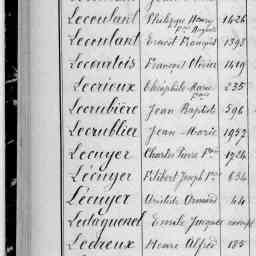 Lecoulant Philippe Henry 1426
Pre Auguste
Lecoulant Ernest François 1393
Lecourtois François Olivier 1419
Lecrieux Théophile Marie 235
Lecrubière Jean Baptist 596
Lecrublier Jean Marie 1952
Lecuyer Charles Pierre 1924
Lécuyer Filibert Joseph 634
Lécuyer Aristide Armand 44
Ledaguenel Emile Jacques exempt
Ledreux Henri Alfred 185